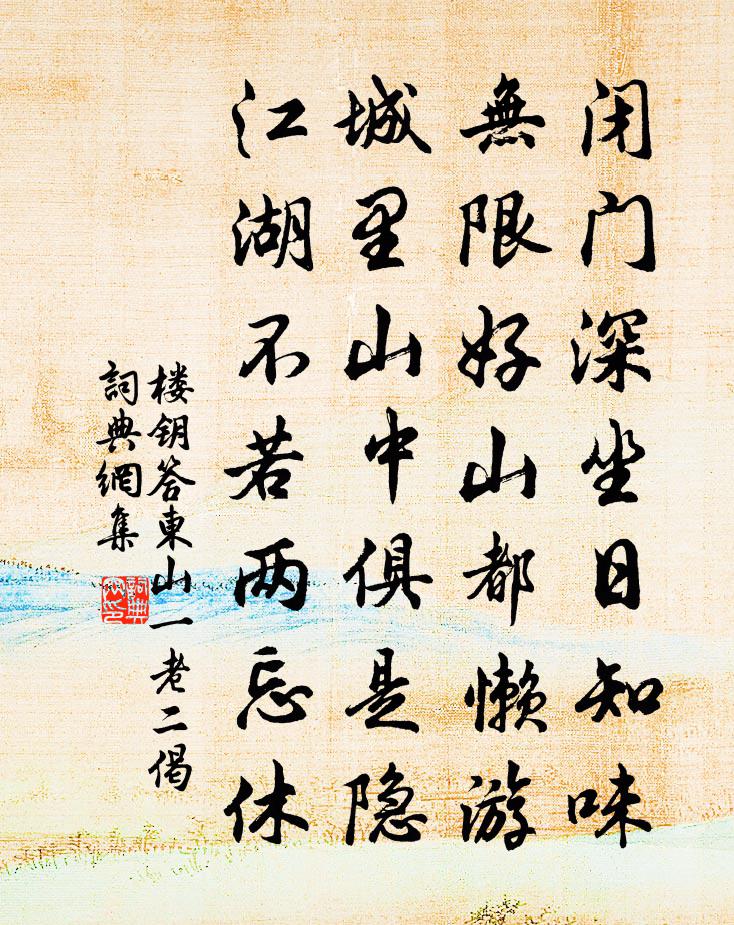 闭门深坐日知味
無限好山都懒游
城里山中俱是隐
江湖不若两忘休
楼钥答東山一老二偈
詞典網集